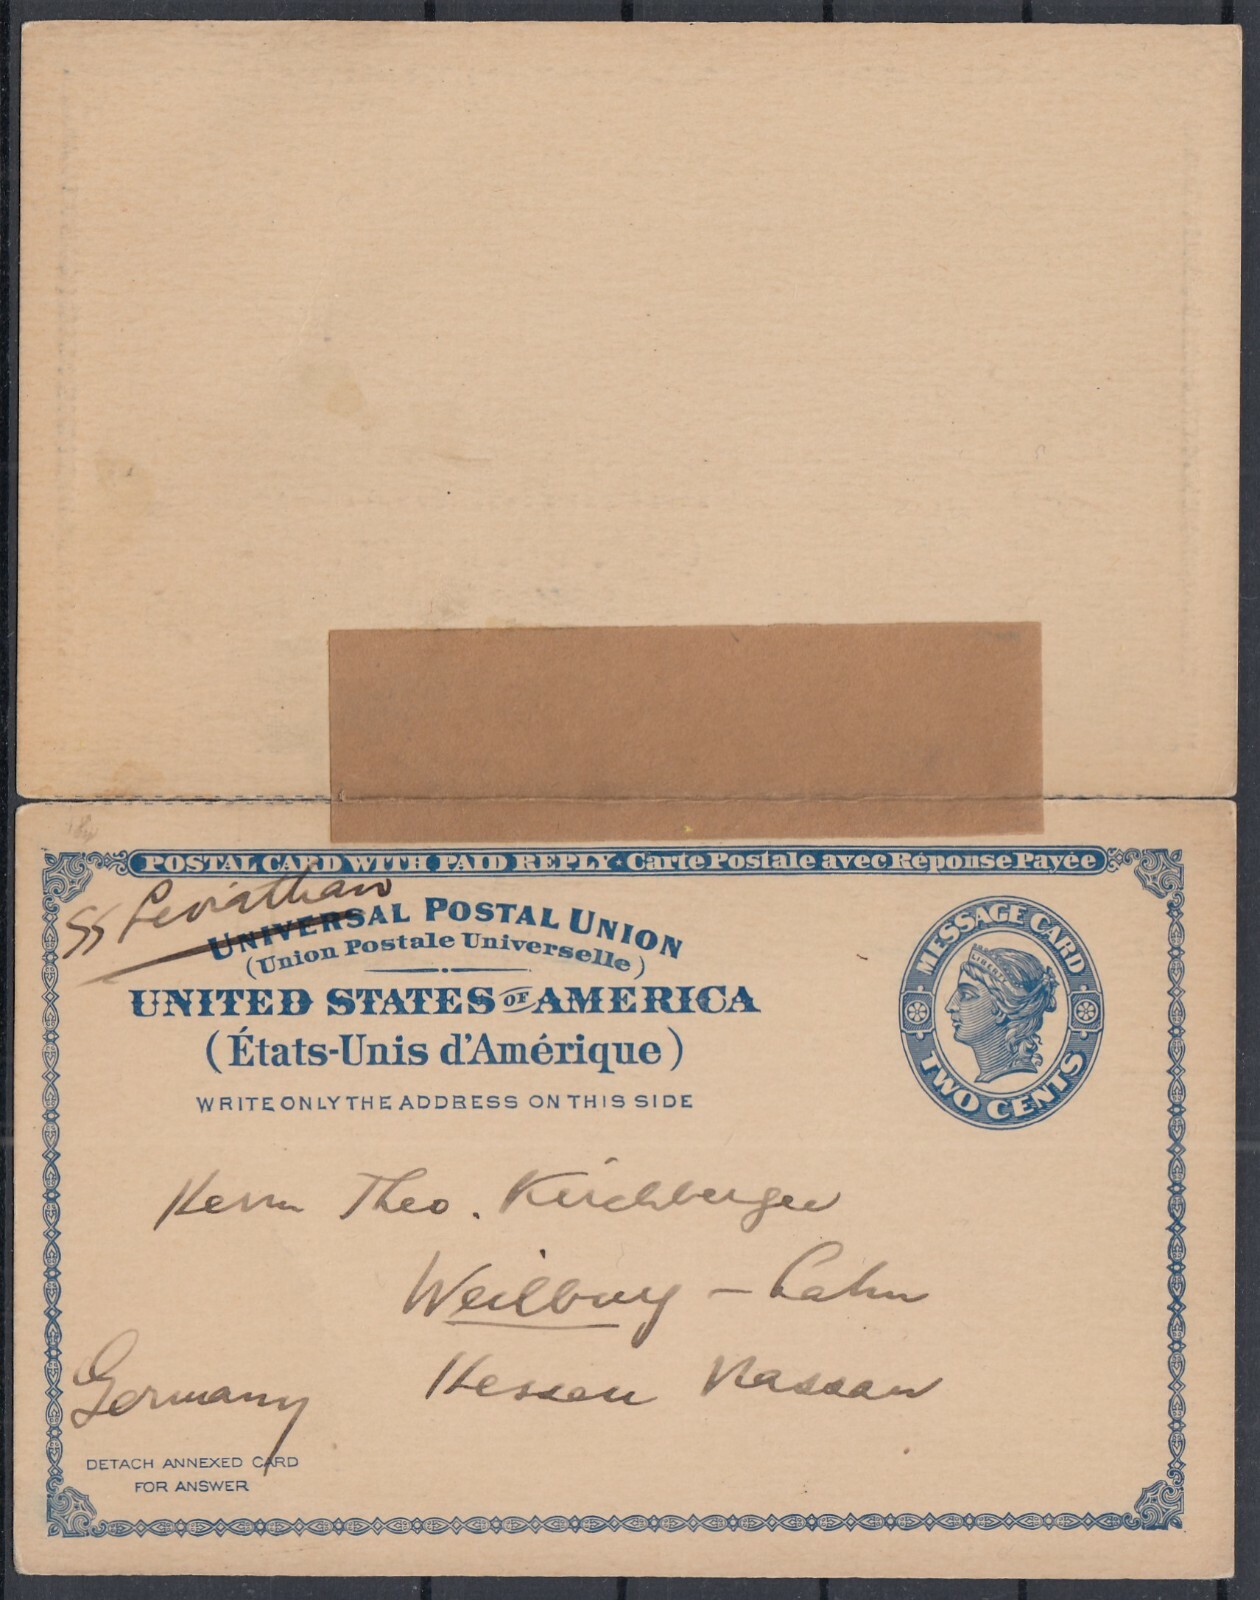 POSTAL CARD WITH PAID REPLY · Carte Postale avec Réponse Payée
SS Leviathan
UNIVERSAL POSTAL UNION
(Union Postale Universelle)
UNITED STATES OF AMERICA
(États-Unis d'Amérique)
WRITE ONLY THE ADDRESS ON THIS SIDE
MESSAGE CARD
LIBERTY
TWO CENTS
Herrn Theo. Kirchberger
Weilburg – Lahn
Hessen Nassau
Germany
DETACH ANNEXED CARD
FOR ANSWER